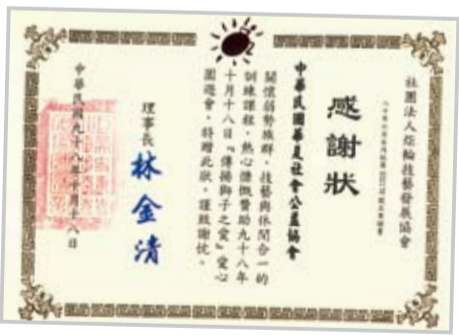 社團法人炬輪技藝發展協會
感謝狀
中華民國華夏社會公益協會
關懷弱勢族群，技藝與休閒合一的
訓練課程，熱心慷慨贊助九十八年
十月十八日『傳揚獅子之愛』愛心
園遊會，特贈此狀，謹致謝忱。
理事長 林金清
中華民國九十八年十月十八日